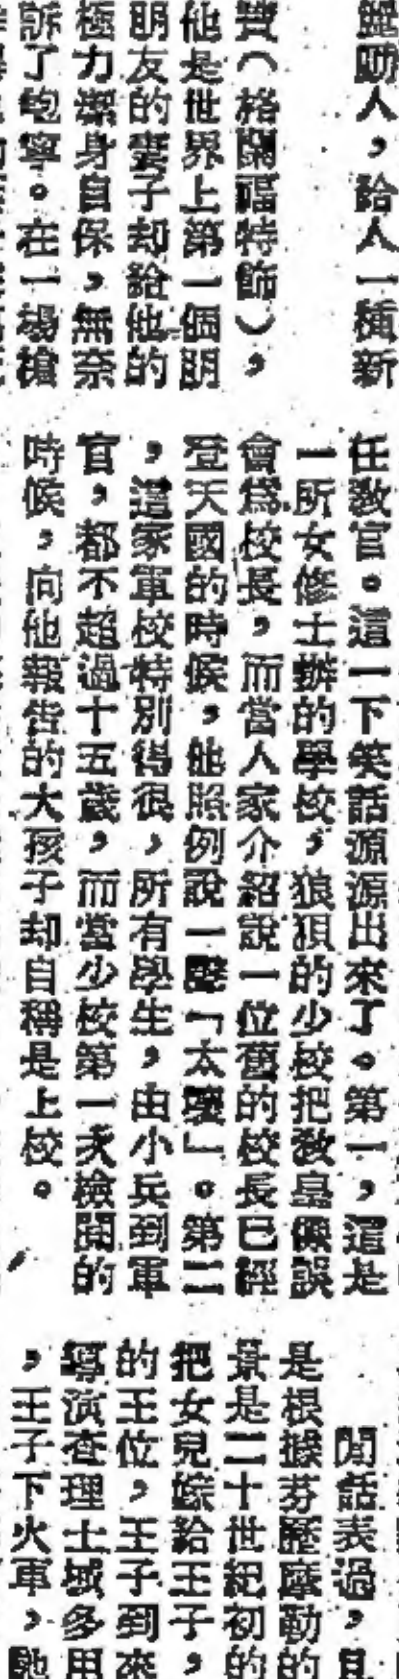 麗動人，給人一種新
贊（格蘭福特飾），
他是世界上第一個朋
朋友的妻子却給他的
極力潔身自保，無奈
訴了鮑寧。在一場槍
任教官。這一下笑話源源出來了。第一，這是
一所女修士辦的學校，狼狽的少校把教皇像誤
會爲校長，而當人家介紹說一位舊的校長已經
登天國的時候，他照例說一聲「太壞」。第二
，這家軍校特別得很，所有學生，由小兵到軍
官，都不超過十五歲，而當少校第一次檢閱的
時候，向他報告的大孩子却自稱是上校。
閒話表過，
是根據芬歷摩勒的
景是二十世紀初的
把女兒嫁給王子，
的王位，王子到來
導演查理士域多用
，王子下火車，